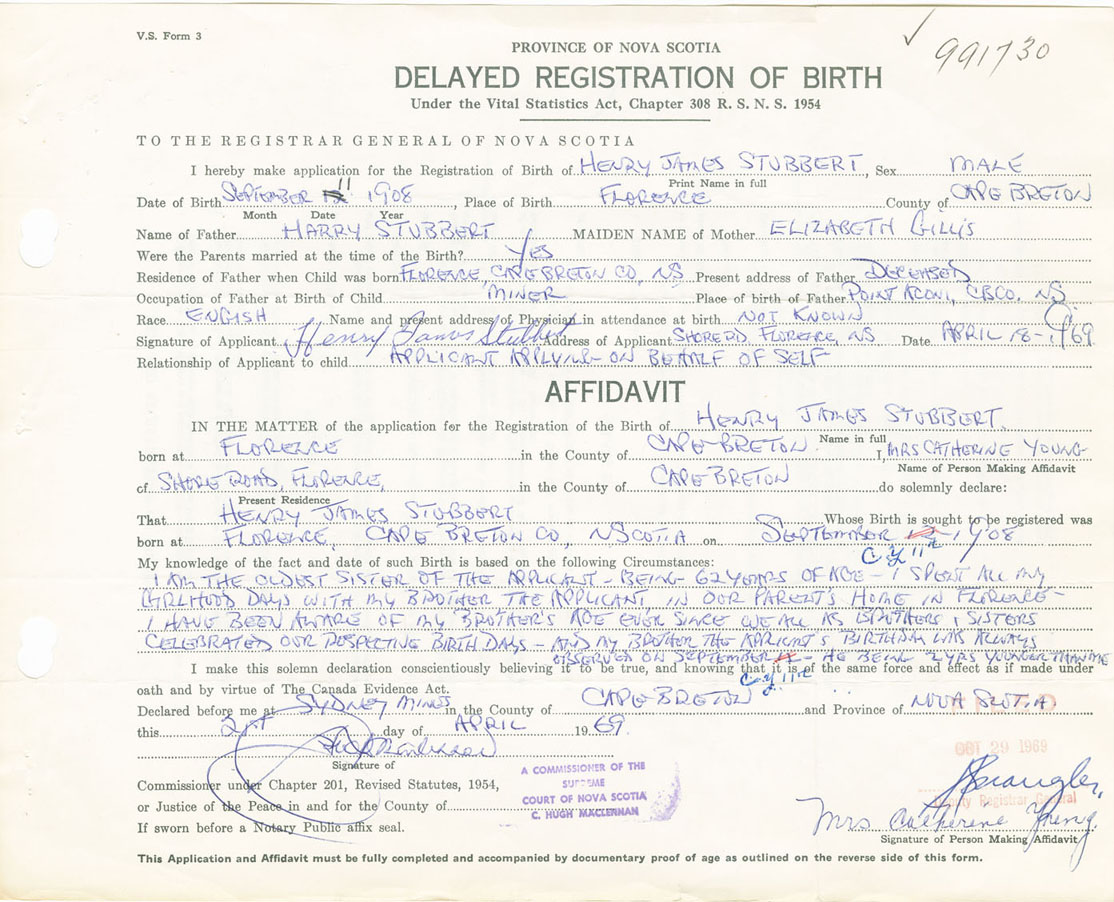 V.S. Form 3
991730
PROVINCE OF NOVA SCOTIA
DELAYED REGISTRATION OF BIRTH
Under the Vital Statistics Act, Chapter 308 R. S. N. S. 1954
TO THE REGISTRAR GENERAL OF NOVA SCOTIA
I hereby make application for the Registration of Birth of HENRY JAMES STUBBERT, Sex MALE
Print Name in full
Date of Birth SEPTEMBER 11 1908, Place of Birth FLORENCE County of CAPE BRETON
Month Date Year
Name of Father HARRY STUBBERT MAIDEN NAME of Mother ELIZABETH GILLIS
Were the Parents married at the time of the Birth? YES
Residence of Father when Child was born FLORENCE, CAPE BRETON CO, NS Present address of Father DECEASED
Occupation of Father at Birth of Child MINER Place of birth of Father POINT ACONI, CBCO. NS
Race ENGISH Name and present address of Physician in attendance at birth NOT KNOWN
Signature of Applicant Henry James Stubbert Address of Applicant SHORE RD. FLORENCE, NS Date APRIL 18-1969
Relationship of Applicant to child APPLICANT APPLYING ON BEHALF OF SELF
AFFIDAVIT
IN THE MATTER of the application fer the Registration of the Birth of HENRY JAMES STUBBERT.
Name in full
born at FLORENCE in the County of CAPE BRETON I, MRS CATHERINE YOUNG
Name of Person Making Affidavit
of SHORE ROAD, FLORENCE, in the County of CAPE BRETON do solemnly declare:
Present Residence
That HENRY JAMES STUBBERT Whose Birth is sought to be registered was
born at FLORENCE, CAPE BRETON CO, N SCOTIA on SEPTEMBER 1908
C.Y. 11
My knowledge of the fact and date of such Birth is based on the following Circumstances:
I AM THE OLDEST SISTER OF THE APPLICANT - BEING 62 YEARS OF AGE - I SPENT ALL MY
GIRLHOOD DAYS WITH MY BROTHER THE APPLICANT IN OUR PARENT'S HOME IN FLORENCE -
I HAVE BEEN AWARE OF MY BROTHER'S AGE EVER SINCE WE ALL AS BROTHERS & SISTERS
CELEBRATED OUR RESPECTIVE BIRTHDAYS - AND MY BROTHER THE APPLICANT'S BIRTHDAY WAS ALWAYS
OBSERVED ON SEPTEMBER - HE BEING 2 YRS YOUNGER THAN ME
I make this solemn declaration conscientiously believing it to be true, and knowing that it is of the same force and effect as if made under
C.Y. 11
oath and by virtue of The Canada Evidence Act.
Declared before me at SYDNEY MINES in the County of CAPE BRETON and Province of NOVA SCOTIA
this 21st day of APRIL 1969.
OCT 29 1969
Signature of
Commissioner under Chapter 201, Revised Statutes, 1954,
or Justice of the Peace in and for the County of
If sworn before a Notary Public affix seal.
A COMMISSIONER OF THE
SUPREME
COURT OF NOVA SCOTIA
C. HUGH MACLENNAN
Deputy Registrar General
Mrs Catherine Young.
Signature of Person Making Affidavit
This Application and Affidavit must be fully completed and accompanied by documentary proof of age as outlined on the reverse side of this form.